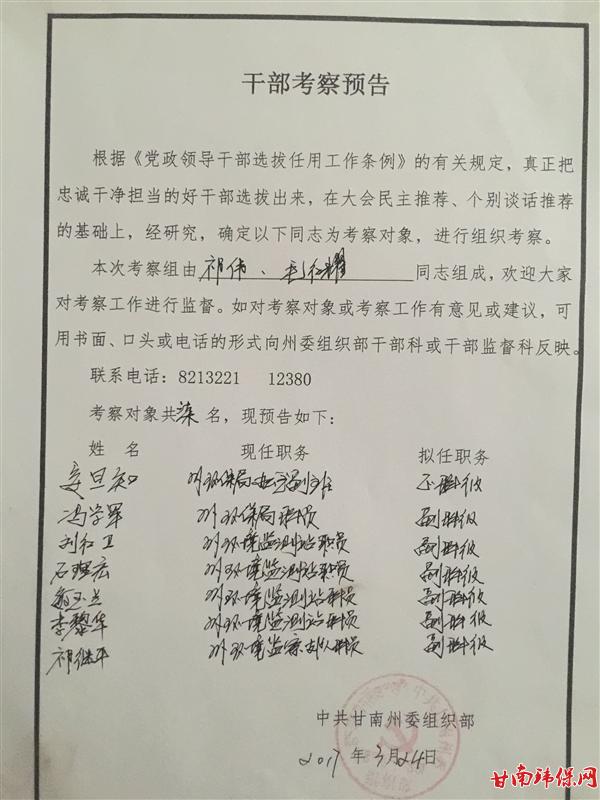 干部考察预告
根据《党政领导干部选拔任用工作条例》的有关规定，真正把
忠诚干净担当的好干部选拔出来，在大会民主推荐、个别谈话推荐
的基础上，经研究，确定以下同志为考察对象，进行组织考察。
本次考察组由祁伟、 同志组成，欢迎大家
对考察工作进行监督。如对考察对象或考察工作有意见或建议，可
用书面、口头或电话的形式向州委组织部干部科或干部监督科反映。
联系电话：8213221 12380
考察对象共柒名，现预告如下：
姓 名 现任职务 拟任职务
旦知 州环保局办公室副主任 正科级
冯学军 州环保局科员 副科级
刘红卫 州环境监测站科员 副科级
石理宏 州环境监测站科员 副科级
玉兰 州环境监测站科员 副科级
李黎华 州环境监测站科员 副科级
祁继平 州环境监察支队科员 副科级
中共甘南州委组织部
2017年3月24日
甘南玮保网